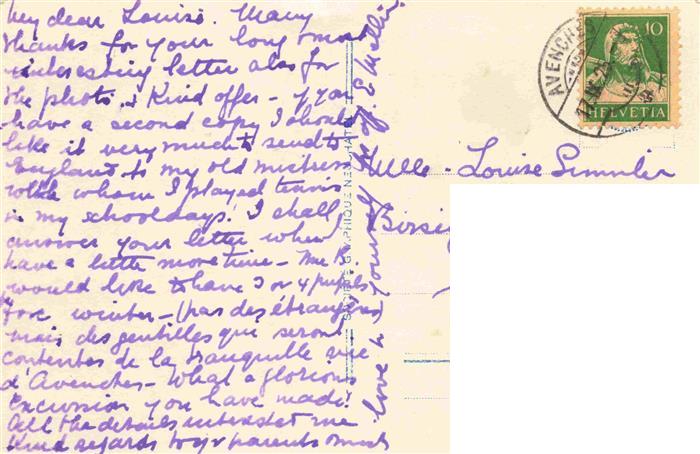 My dear Louise. Many
thanks for your long most
interesting letter also for
the photo & Kind offer - if you
have a second copy I should
like it very much to send to
England to my old mistress
with whom I played tennis
in my schooldays! I shall
answer your letter when I
have a little more time - Me B.
would like to have 3 or 4 pupils
for winter - (pas des étrangères)
mais des gentilles qui seront
contentes de la tranquille vie
d'Avenches - What a glorious
Excursion you have made!
All the details interest me
Kind regards to yr parents & much
love to yourself
Mlle. Louise Simmler
Birsig
AVENCHES
10
HELVETIA
SOCIÉTÉ GRAPHIQUE NEUCHATEL